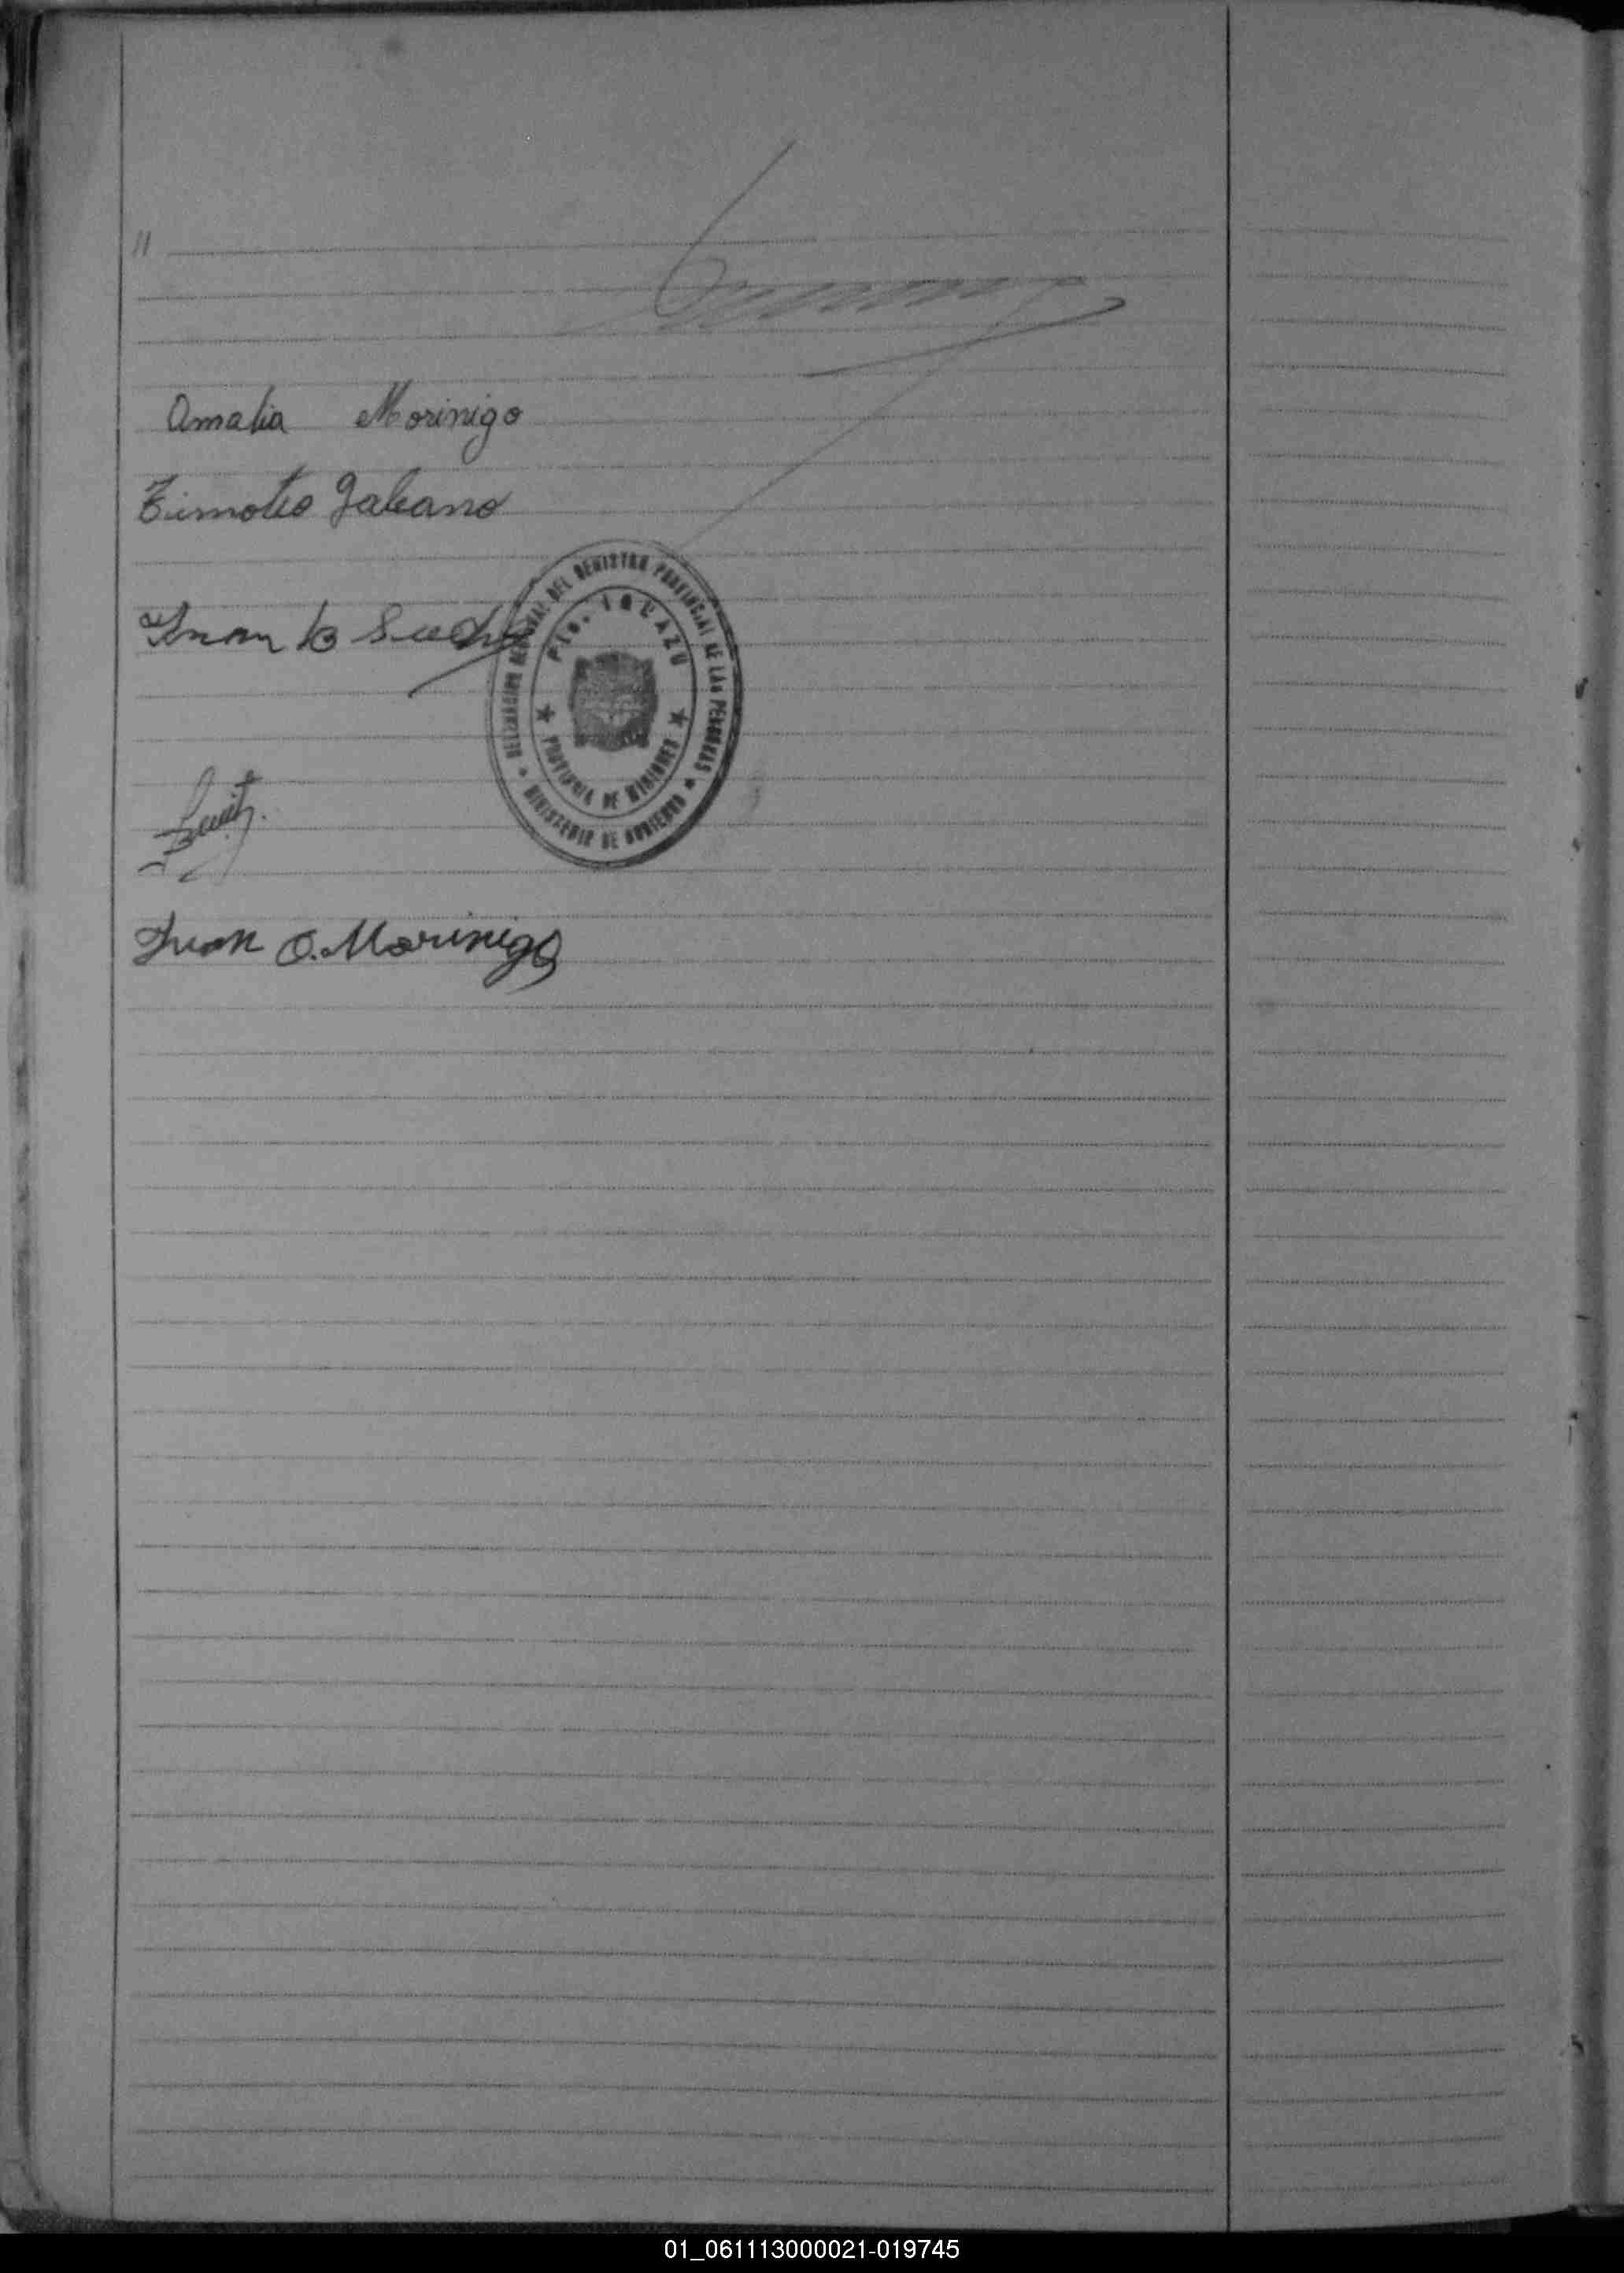 11
Amalia Morinigo
Timoteo Galeano
Juan B
DELEGACION REGIONAL DEL REGISTRO PROVINCIAL DE LAS PERSONAS
Pto. IGUAZU
PROVINCIA DE MISIONES
MINISTERIO DE GOBIERNO
Juan O. Morinigo
01_061113000021-019745